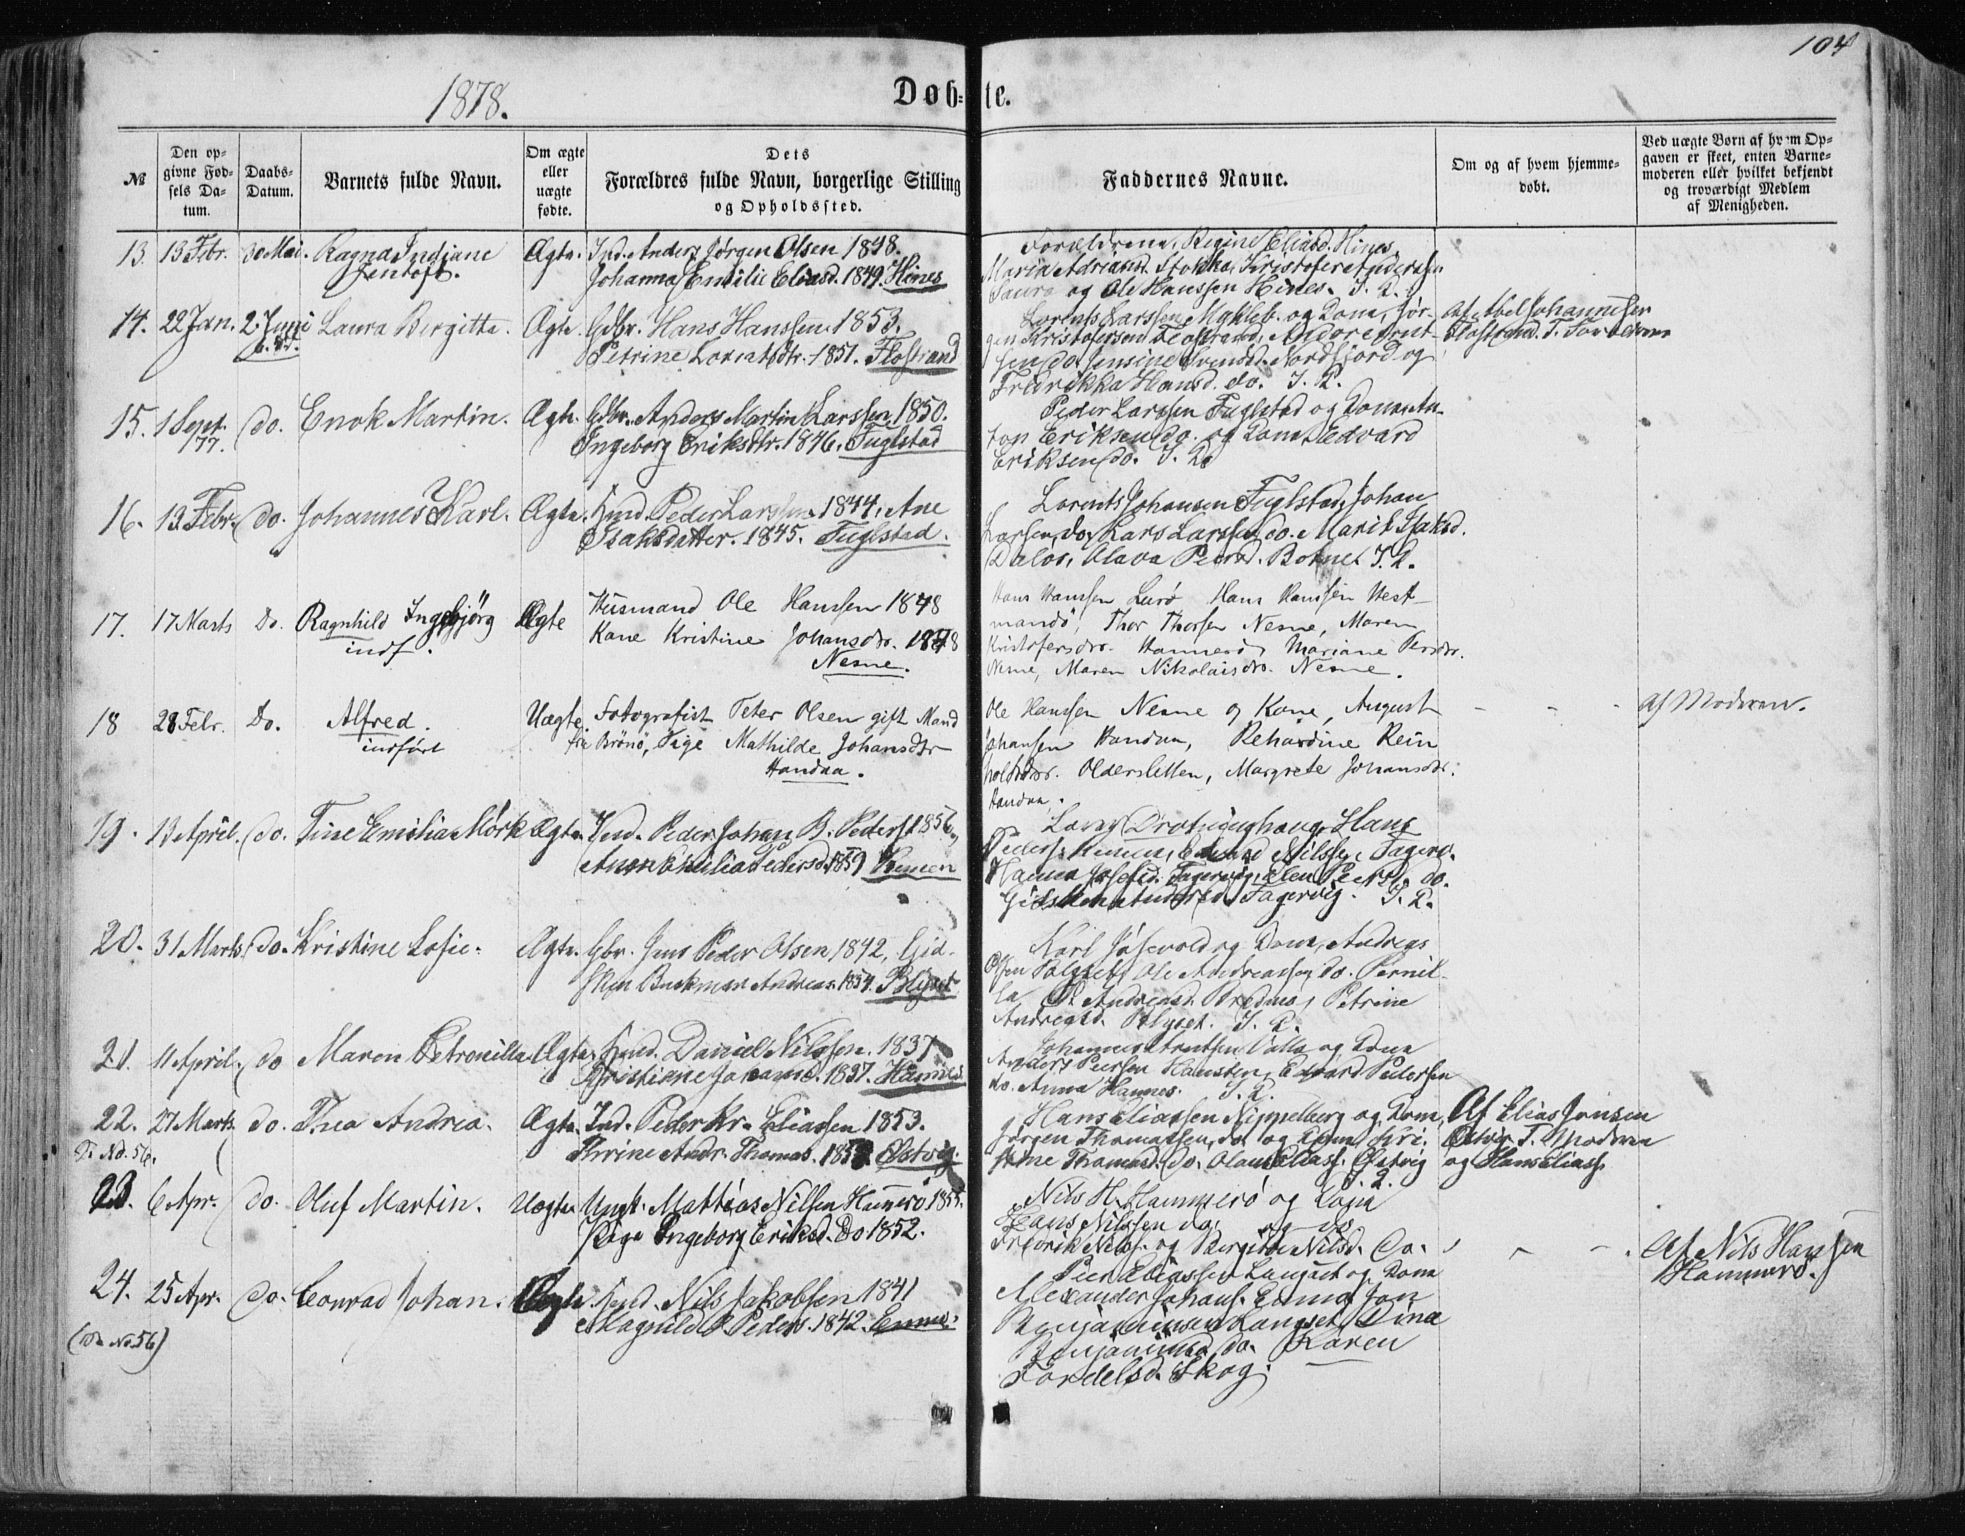 104
1878.
Døb-te.
№
Den op-
givne Fød-
sels Da-
tum.
Daabs-
Datum.
Barnets fulde Navn.
Om ægte
eller
uægte
fødte.
Dets
Forældres fulde Navn, borgerlige Stilling
og Opholdssted.
Faddernes Navne.
Om og af hvem hjemme-
døbt.
Ved uægte Børn af hvem Op-
gaven er skeet, enten Barne-
moderen eller hvilket bekjendt
og troværdigt Medlem
af Menigheden.
13. 13 Febr. 30 Mai. Ragna Indiane
Jentoft.
Ægte. Ind. Anders Jørgen Olsen 1848.
Johanna Emilie Eliasd. 1849. Hines
Forældrene, Regine Eliasd. Hines,
Maria Adriand. Stokka, Kristofer
Laura og Ole Hanssen Hines. I. R.
14. 22 Jan. 2 Juni Laura Birgitta. Ægte. Gdbr. Hans Hanssen 1853.
Petrine Lorentsdtr. 1851. Flostrand
Lorents Larssen Mykleb. og Kona, Jør-
gen Kristofersen Flostrand, Andor
Jensine Svendsd. Nordfjord og
Fredrikka Hansd. do. I. R.
Af Abel Johannesen
Flostrand. T. Forældrene
15. 1 Sept. 77. do. Enok Martin. Ægte. Gdbr. Anders Martin Larssen 1850.
Ingeborg Eriksdtr. 1846. Fuglstad
Peder Larssen Fuglstad og Kona, An-
ton Eriksen do. og Kona, Edvard
Eriksen do. I. R.
16. 13 Febr. do. Johannes Karl. Ægte. Ind. Peder Larssen 1844, Ane
Isaksdatter. 1845. Fuglstad.
Lorents Johansen Fuglstad, Johan
Larsen do. Lars Larssen do. Marit Isaksd.
Dalos, Olava Pedersd. Botne. I. R.
17. 17 Marts Do. Ragnhild Ingebjörg
indf.
Ægte Husmand Ole Hanssen 1848
Kone Kristine Johansdr. 1848
Nesne.
Hans Hanssen Lurø Hans Hanssen Vest-
mandø, Thor Thorsen Nesne, Maren
Kristofersdr. Hammerø, Mariane Persdr.
Nesne, Maren Nikolaisdr. Nesne.
18 28 Febr. Do. Alfred.
indført
Uægte Fotografist Peter Olsen gift Mand
fra Brönö, Pige Mathilde Johansdtr
Handaa.
Ole Hanssen Nesne og Kone, August
Johansen Handaa, Rehardine Rein
holdsdr. Oldersletten, Margrete Johansdr.
Handaa.
Af Moderen.
19. 13 April. do. Tine Emilia Mörk Ægte. Ind. Peder Johan B. Peders. 1856,
Anna Emilia Pedersd. 1859 Remen
Lovas Drotninghaug, Hans
Peders. Remen, Edvard Nilssen Fagerv.
Hanna Josefsd. Fagervig, Elen Pedersd. do.
Gidsken Andrsd. Fagervig. I. R.
20. 31 Marts. do. Kristine Sofie. Ægte. Gbr. Jens Peder Olsen 1842, Gid-
sken Buckman Andreas. 1854. Polgset
Karl Jósevold og Kona, Andreas
Olsen Polgset, Ole Andreassen do. Pernil-
la Andreasd. Bredmo, Petrine
Andreasd. Polgset. I. R.
21. 11 April. do Maren Petronilla Ægte. Ind. Daniel Nilssen. 1837
Kristianne Johansd. 1837. Hamnes
Johannes Arntsen Valla og Kona
Anders Peersen Edvard Pedersen
do. Anna Hamnes. I. R.
22. 27 Marts. do. Thea Andrea. Ægte. Ind. Peder Kr. Eliassen 1853.
Thrine Andr. Thomas. Østvig.
Hans Eliassen Nippelberg og Kona,
Jörgen Thomassen do. og Kona, Kri-
stine Thomasd. do. Olaus Eliass. Østvig
I. R.
Af Elias Jensen
Østvig T. Moderen
og Hans Eliass.
23. 6 Apr. do. Oluf Martin. Uægte Ungk. Mattias Nilsen Hammerö 1855.
Pige Ingeborg Eriksd. Do 1852.
Nils H. Hammerö og Kona
Hans Nilssen do. og do.
Fredrik Nilss. og Bergitte Nilsd. Do.
Af Nils Hansen
Hammerö.
24. 25 Apr. do. Conrad Johan. Ægte Ind. Nils Jakobsen 1841
Magnild P. Peders. 1842.
(Da No. 56)
Peer Eliassen Langset og Kona
Alexander Johans. Jon
Benjaminsen Langset, Dina
Benjaminsd. do. Karen
Fordelsd. Skog.